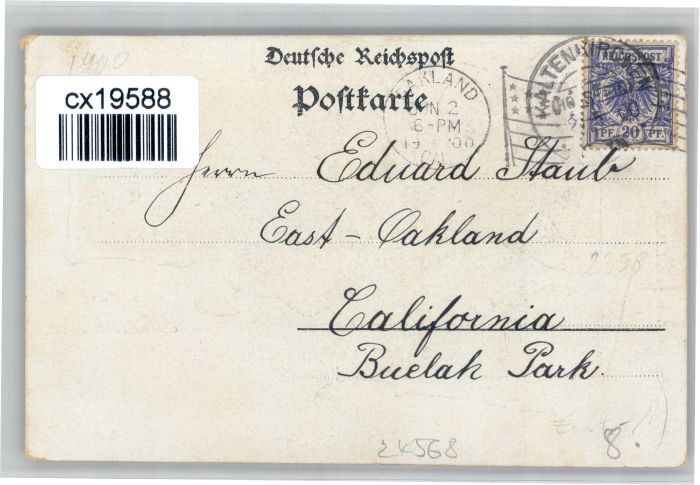 1900
Deutsche Reichspost
cx19588
Postkarte
OAKLAND
JUN 2
6-PM
KALTENKIRCHEN
REICHSPOST
PF. 20 PF.
Herrn Eduard Staub
East-Oakland
California
Buelah Park.
24568
8.